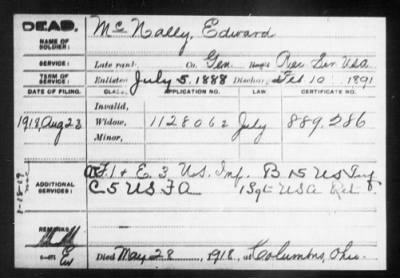 DEAD.
NAME OF SOLDIER: McNally, Edward
SERVICE: Late rank, Co. Gen. Reg't Rec Ser Usa
TERM OF SERVICE: Enlisted July 5, 1888 Discharged Feb 10, 1891
DATE OF FILING. CLASS. APPLICATION NO. LAW CERTIFICATE NO.
Invalid,
1918, Aug 23 Widow, 1128062 July 889.286
Minor,
ADDITIONAL SERVICES: F, I & E. 3 U.S. Inf. B 15 US Inf
C 5 US FA 1 Sgt USA Ret.
REMARKS:
Died May 28, 1918, at Columbus, Ohio.